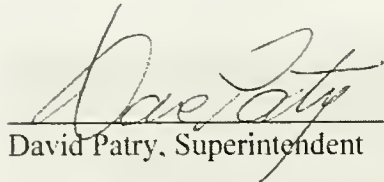 Dave Patry
David Patry, Superintendent